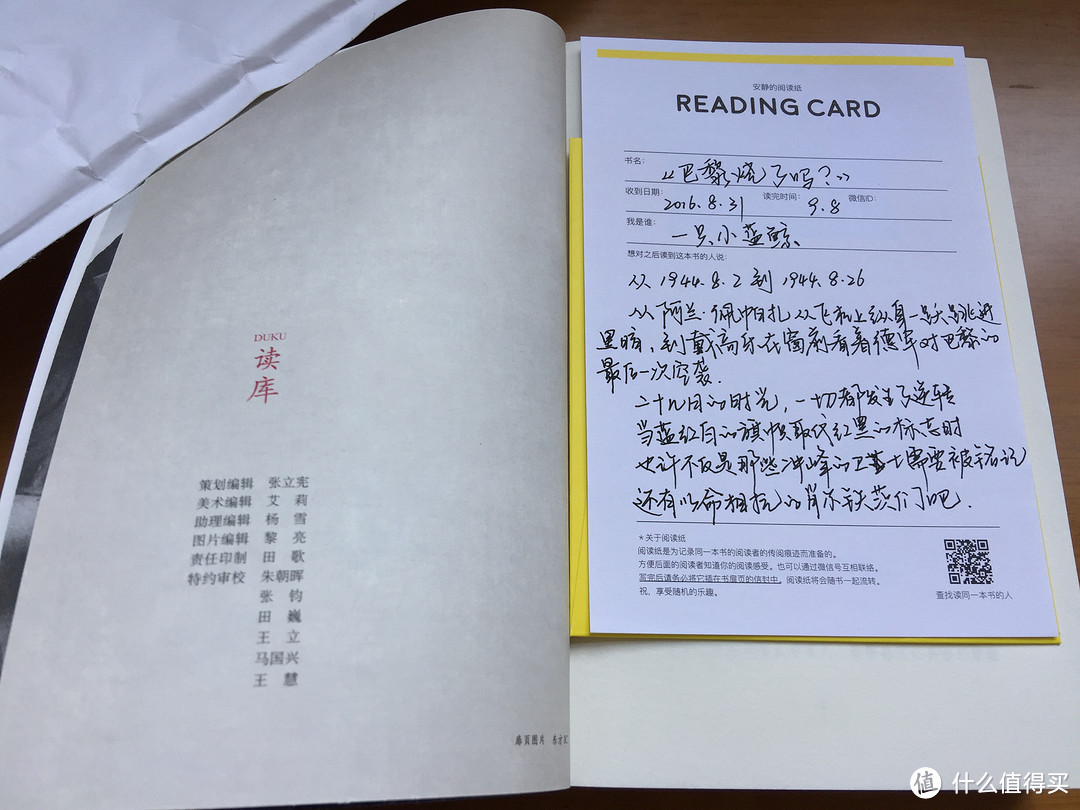 DUKU
读
库
策划编辑 张立宪
美术编辑 艾 莉
助理编辑 杨 雪
图片编辑 黎 亮
责任印制 田 歌
特约审校 朱朝晖
张 钧
田 巍
王 立
马国兴
王 慧
扉页图片
安静的阅读纸
READING CARD
书名：《巴黎烧了吗？》
收到日期：2016.8.31 读完时间：9.8 微信ID：
我是谁：一只小蓝鲸
想对之后读到这本书的人说：
从 1944.8.2 到 1944.8.26
从阿兰·佩帕扎从飞机上纵身一跃跳进
黑暗，到戴高乐在窗前看着德军对巴黎的
最后一次空袭.
二十几日的时光，一切都发生了逆转
当蓝红白的旗帜取代红黑的标志时
也许不仅是那些冲峰的卫士需要被铭记
还有以命相抗的肖尔铁茨们吧.
*关于阅读纸
阅读纸是为记录同一本书的阅读者的传阅痕迹而准备的。
方便后面的阅读者知道你的阅读感受。也可以通过微信号互相联络。
写完后请务必将它插在书扉页的信封中。阅读纸将会随书一起流转。
祝，享受随机的乐趣。
查找读同一本书的人
值 什么值得买